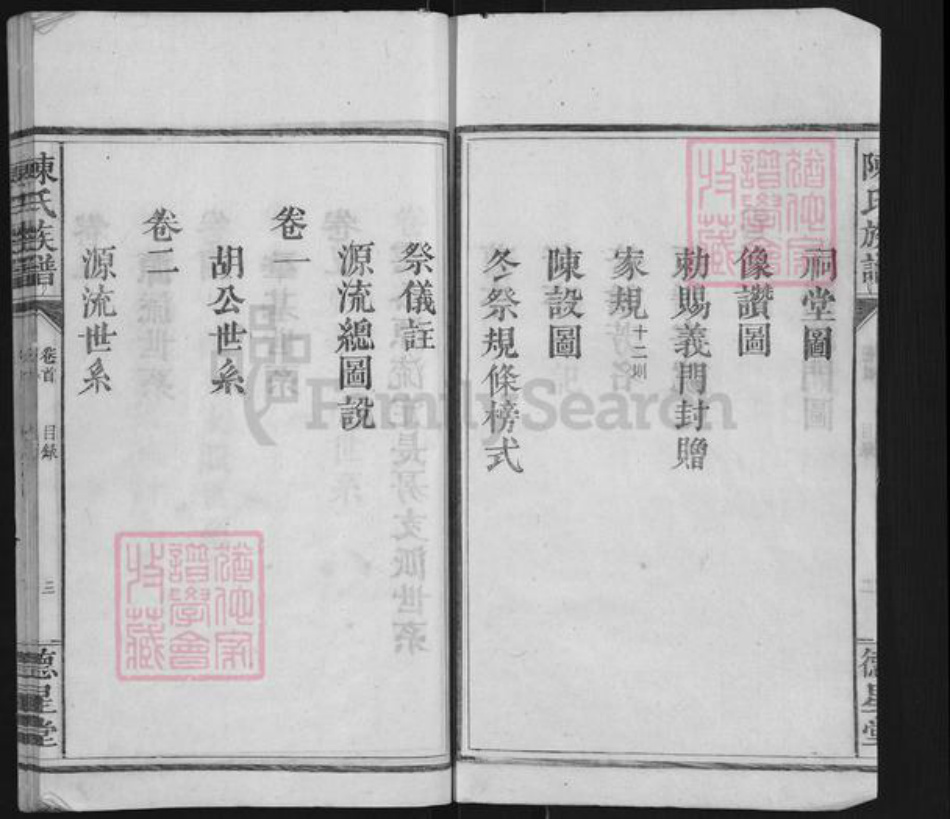 陳氏族譜
德星堂
祠堂圖
像讚圖
勅賜義門封贈
家規十二則
陳設圖
冬祭規條榜式
祭儀註
源流總圖説
卷一
胡公世系
卷二
源流世系
陳氏族譜
卷首
目錄
三
德星堂
猶他家譜學會收藏
猶他家譜學會收藏
FamilySearch